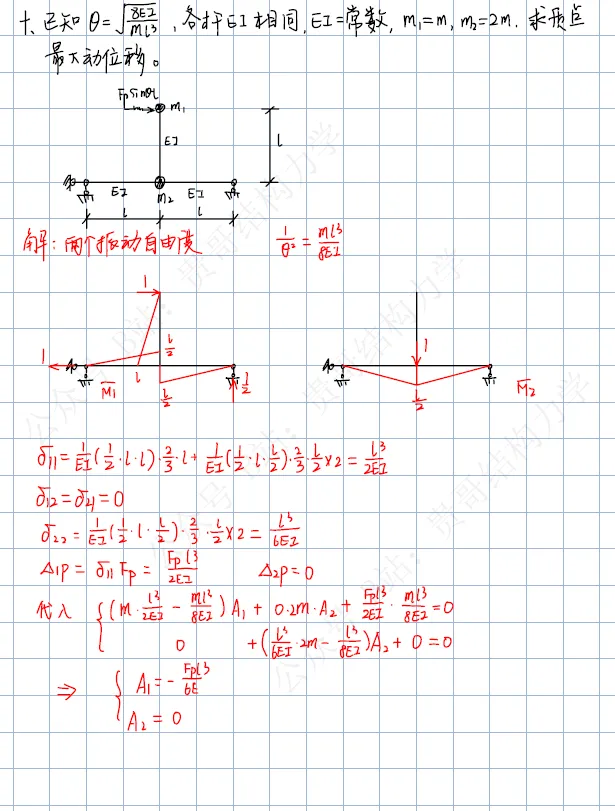 十、已知 θ=√(8EI/ml³), 各杆EI相同, EI=常数, m₁=m, m₂=2m. 求质点
最大动位移。
Fpsinθt
m₁
EI
l
EI m₂ EI
l l
解：两个振动自由度 1/θ² = ml³/8EI
1
l/2
1 l M̄₁ l/2 1/2
1
l/2 M̄₂
δ₁₁ = 1/EI(1/2·l·l)·2/3·l + 1/EI(1/2·l·l/2)·2/3·l/2×2 = l³/2EI
δ₁₂=δ₂₁=0
δ₂₂ = 1/EI(1/2·l·l/2)·2/3·l/2×2 = l³/6EI
Δ1P = δ₁₁Fp = Fpl³/2EI Δ2P=0
代入 { (m·l³/2EI - ml³/8EI)A₁ + 0.2m·A₂ + Fpl³/2EI · ml³/8EI = 0
0 + (l³/6EI·2m - l³/8EI)A₂ + 0 = 0
⇒ { A₁ = - Fpl³/6E
A₂ = 0
公众号 b站：贵哥结构力学
公众号 b站：贵哥结构力学